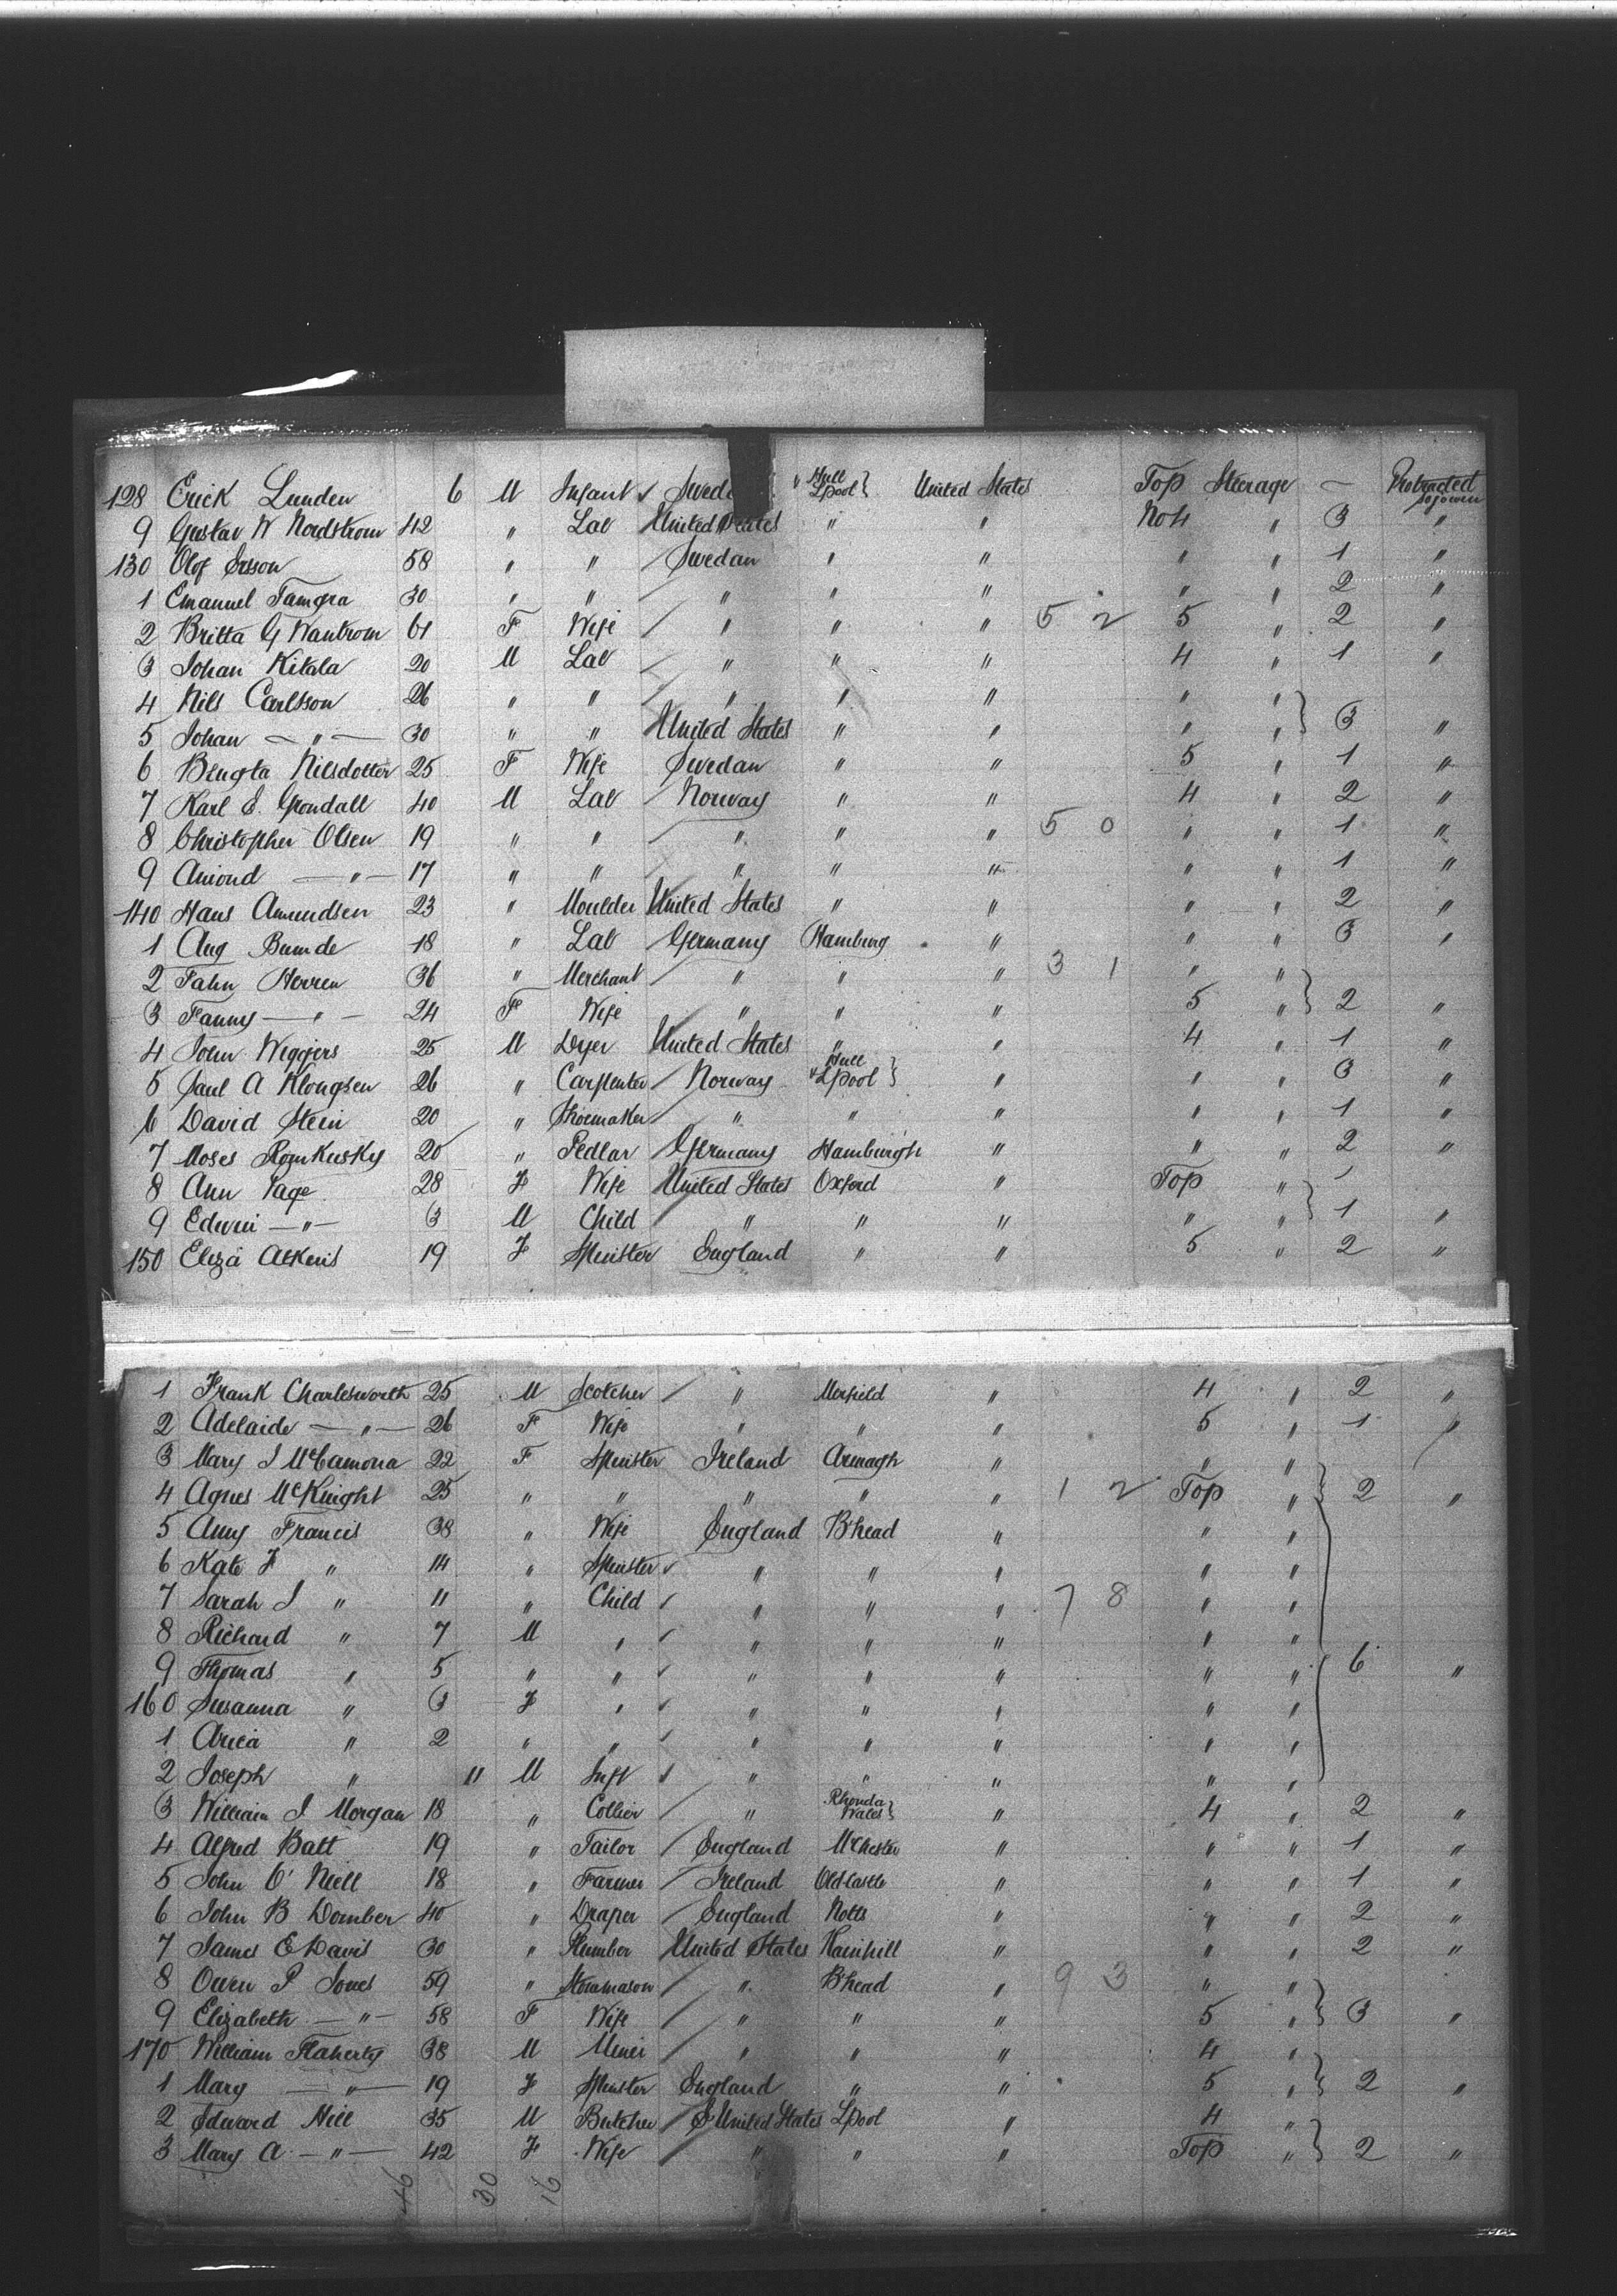 128 Erick Lunden 6 M Infant ✓ Swed " Hull Lpool } United States Top Steerage — Protracted sojourn
9 Gustav W Nordstrom 42 " Lab United States " " No 4 " 3 "
130 Olof Ersson 58 " " / Swedan " " " " 1 "
1 Emanuel 30 " " / " " " " " 2 "
2 Britta G 61 F Wife / " " " 5 2 5 " 2 "
3 Johan Kitala 20 M Lab / " " " 4 " 1 "
4 Nils Carlsson 26 " " / " " " " "
5 Johan — " — 30 " " United States " " " " } 3 "
6 Bengta Nilsdotter 25 F Wife Swedan " " 5 " 1 "
7 Karl E. Grondall 40 M Lab / Norway " " 4 " 2 "
8 Christopher Olsen 19 " " / " " " 5 0 " " 1 "
9 Amond — " — 17 " " / " " " " " 1 "
140 Hans Amundsen 23 " Moulder United States " " " " 2 "
1 Aug Bumde 18 " Lab / Germany Hamburg " " " 3 "
2 Herren 36 " Merchant / " " " 3 1 " "
3 Fanny — " — 24 F Wife " " " 5 " } 2 "
4 John Wiggers 25 M Dyer United States " " 4 " 1 "
5 Paul A Klongsen 26 " Carpenter / Norway " Hull Lpool } " " " 3 "
6 David Stein 20 " Shoemaker / " " " " " 1 "
7 Moses Romkusky 20 " Pedlar / Germany Hamburgh " " " 2 "
8 Ann Page 28 F Wife United States Oxford " Top "
9 Edwin — " — 3 M Child / " " " " " } 1 "
150 Eliza Atkins 19 F Spinster England " " 5 " 2 "
1 Frank Charlesworth 25 M Scotcher / " Merfield " 4 " 2 "
2 Adelaide — " — 26 F Wife " " " 5 " 1 "
3 Mary J 22 F Spinster Ireland Armagh " " "
4 Agnes McKnight 25 " " " " " 1 2 Top " } 2 "
5 Amy Francis 38 " Wife England B'head " " "
6 Kate F " 14 " Spinster ✓ " " " " "
7 Sarah J " 11 " Child ✓ " " " 7 8 " "
8 Richard " 7 M " ✓ " " " " "
9 Thomas " 5 " " ✓ " " " " " } 6 "
160 Susanna " 3 F " ✓ " " " " "
1 " 2 " " ✓ " " " " "
2 Joseph " 11 M Inft ✓ " " " " "
3 William J Morgan 18 " Collier / " Rhonda Wales } " 4 " 2 "
4 Alfred Batt 19 " Tailor / England M'Chester " " " 1 "
5 John O'Niell 18 " Farmer / Ireland Oldcastle " " " 1 "
6 John B Domber 40 " Draper / England Notts " " " 2 "
7 James E Davis 30 " Plumber United States Rainhill " " " 2 "
8 Owen P Jones 59 " Stonmason / " B'head " 9 3 " "
9 Elizabeth — " — 58 F Wife / " " " 5 " } 3 "
170 William Flaherty 38 M Miner / " " " 4 "
1 Mary — " — 19 F Spinster England " " 5 " } 2 "
2 Edward Hill 35 M Butcher / United States Lpool " 4 "
3 Mary A — " — 42 F Wife / " " " Top " } 2 "
46 30 16